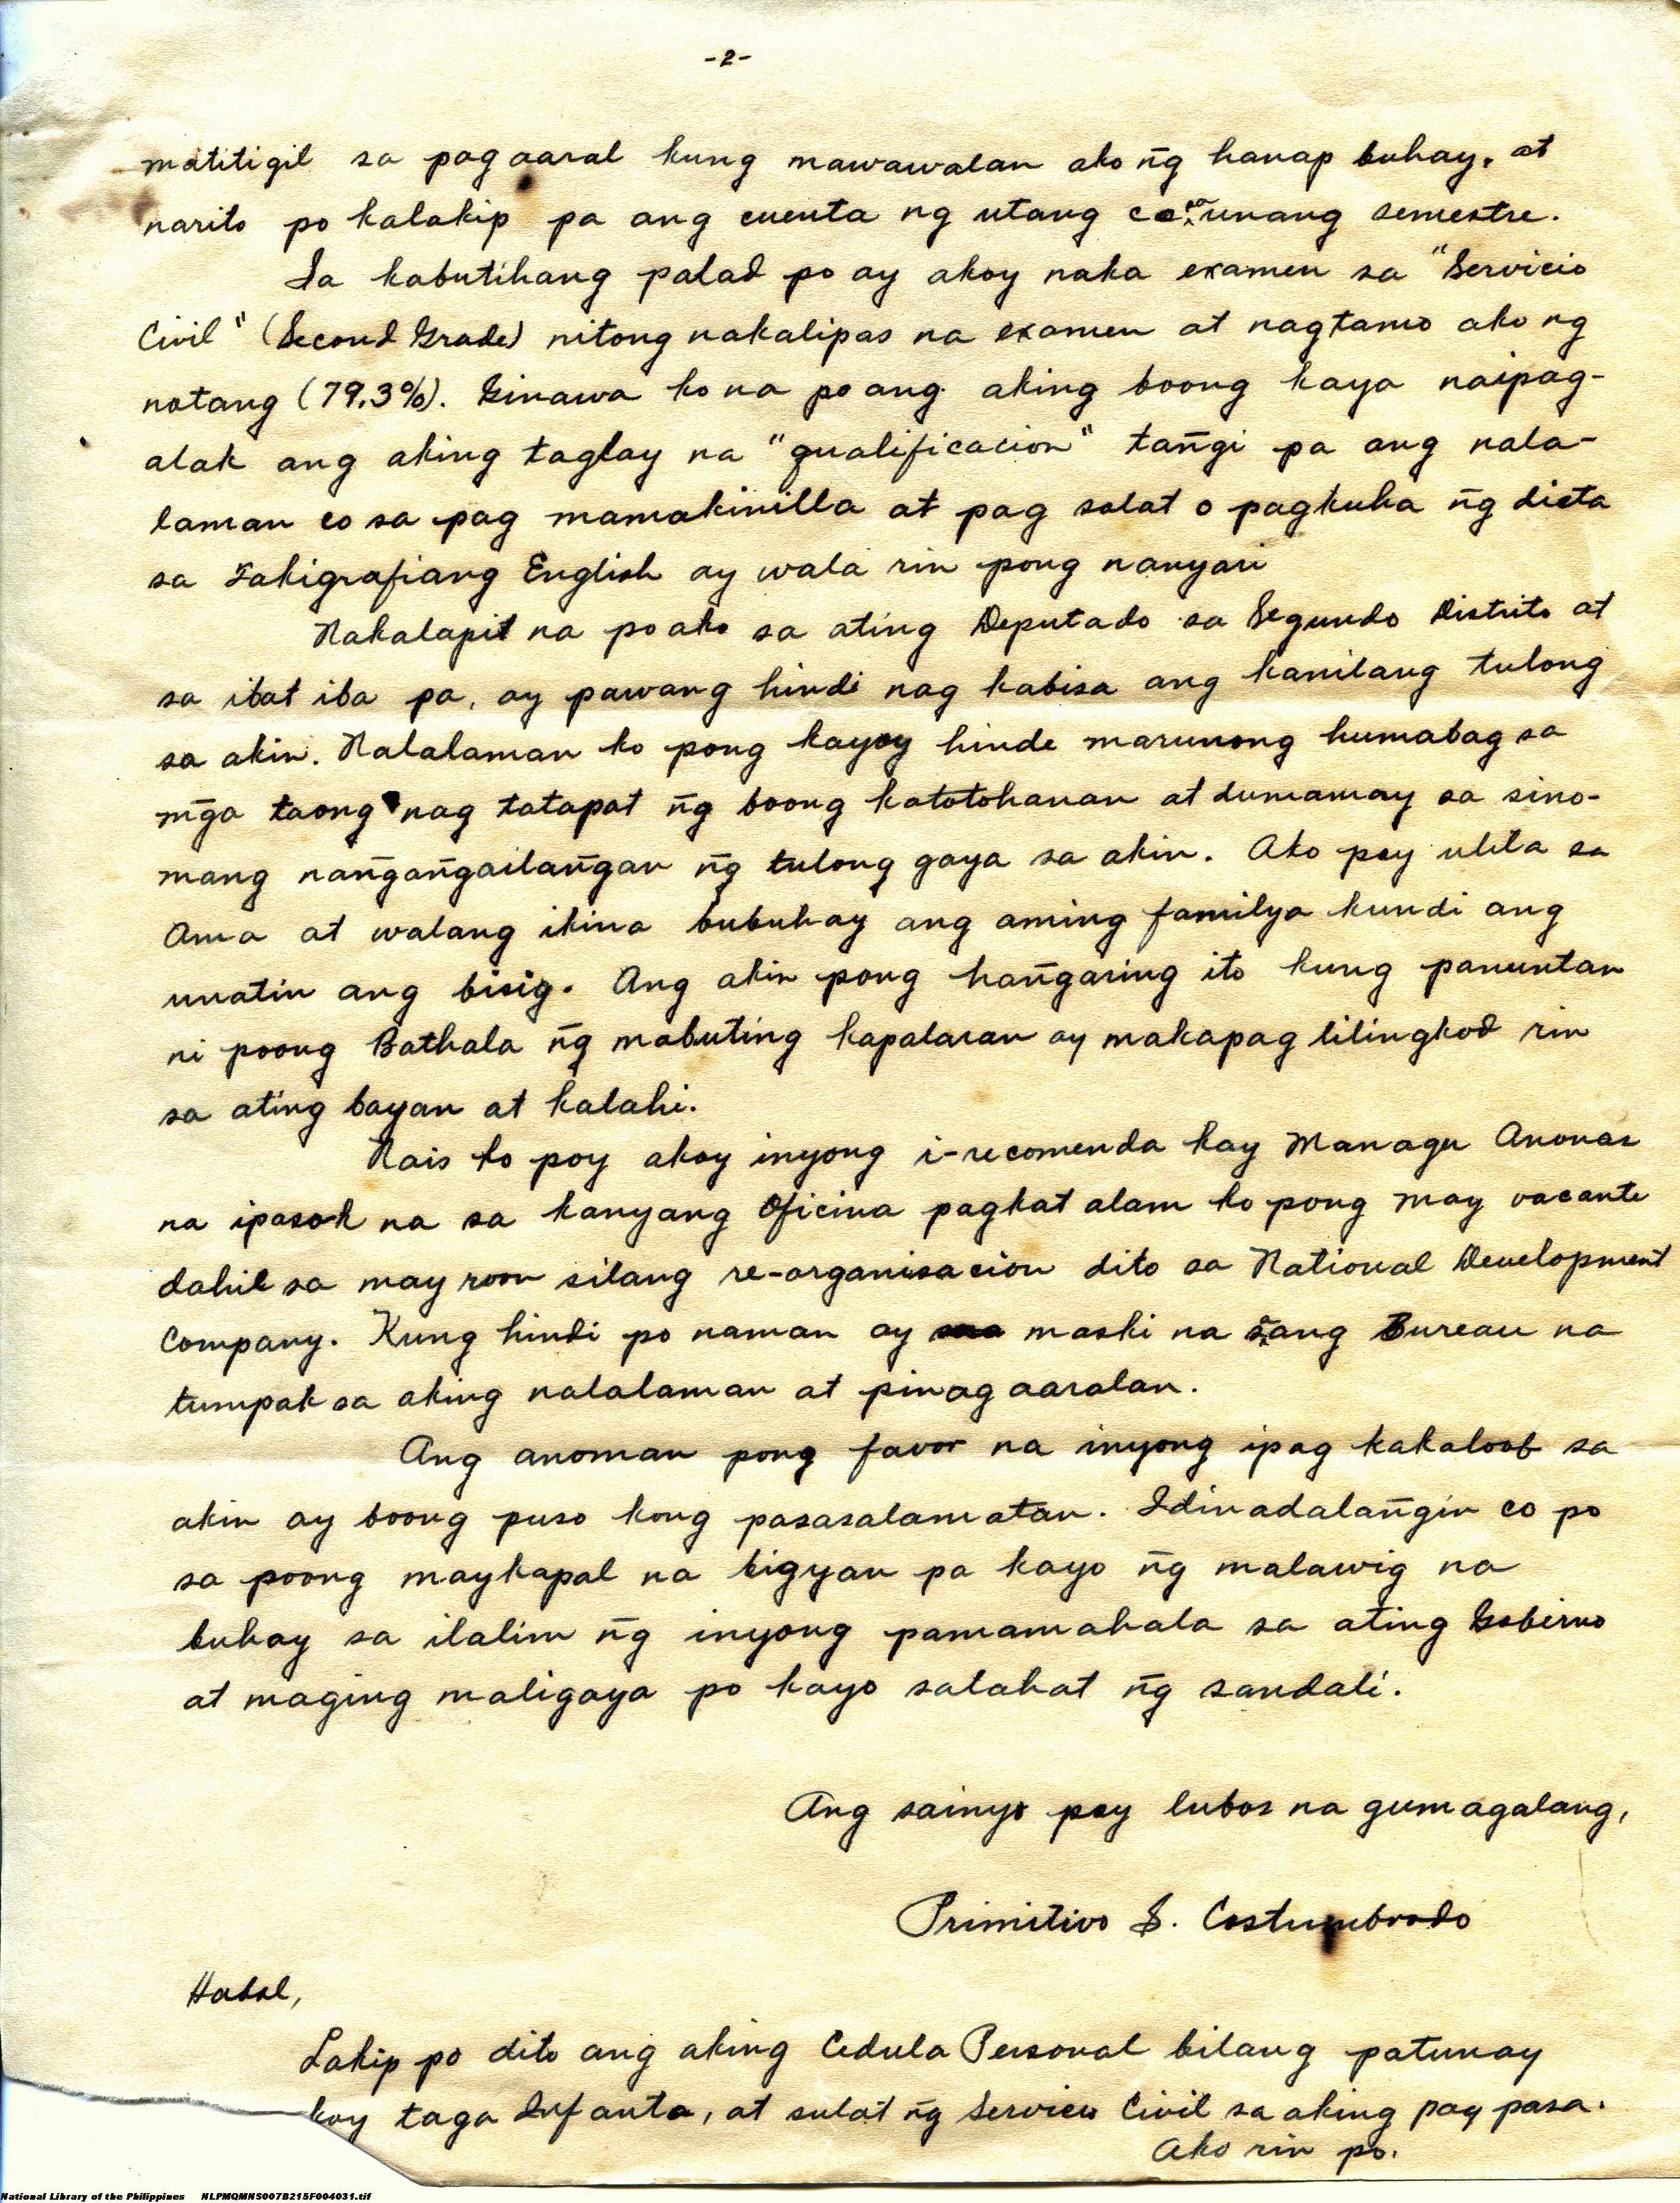 -2-
matitigil sa pag aaral kung mawawalan ako n̄g hanap buhay, at
narito po kalakip pa ang cuenta ng utang co sa unang semestre.
Sa kabutihang palad po ay akoy naka examen sa "Servicio
Civil" (Second Grade) nitong nakalipas na examen at nagtamo ako ng
notang (79.3%). Ginawa ko na po ang aking boong kaya naipag-
alak ang aking taglay na "qualificacion" tan̄gi pa ang nala-
laman co sa pag mamakinilla at pag salat o pagkuha n̄g dicta
sa Takigrafiang English ay wala rin pong nanyari
Nakalapit na po ako sa ating Deputado sa Segundo Distrito at
sa ibat iba pa, ay pawang hindi nag kabisa ang kanilang tulong
sa akin. Nalalaman ko pong kayoy hinde marunong humabag sa
mḡa taong nag tatapat n̄g boong katotohanan at dumamay sa sino-
mang nan̄gan̄gailan̄gan n̄g tulong gaya sa akin. Ako poy ulila sa
Ama at walang ikina bubuhay ang aming familya kundi ang
unatin ang bisig. Ang akin pong han̄garing ito kung panuntan
ni poong Bathala n̄g mabuting kapalaran ay makapag lilingkod rin
sa ating bayan at kalahi.
Nais ko poy akoy inyong i-recomenda kay Manager Anonas
na ipasok na sa kanyang Oficina pagkat alam ko pong may vacante
dahil sa may roon silang re-organisacion dito sa National Development
Company. Kung hindi po naman ay maski na sang Bureau na
tumpak sa aking nalalaman at pinag aaralan.
Ang anoman pong favor na inyong ipag kakaloob sa
akin ay boong puso kong pasasalamatan. Idinadalan̄gin co po
sa poong maykapal na bigyan pa kayo n̄g malawig na
buhay sa ilalim n̄g inyong pamamahala sa ating Gobierno
at maging maligaya po kayo salahat n̄g sandali.
Ang sainyo poy lubos na gumagalang,
Primitivo S. Costumbrado
Habol,
Lakip po dito ang aking Cedula Personal bilang patunay
koy taga Infanta, at sulat n̄g Servicio Civil sa aking pag pasa.
Ako rin po.
National Library of the Philippines NLPMQMNS007B215F004031.tif